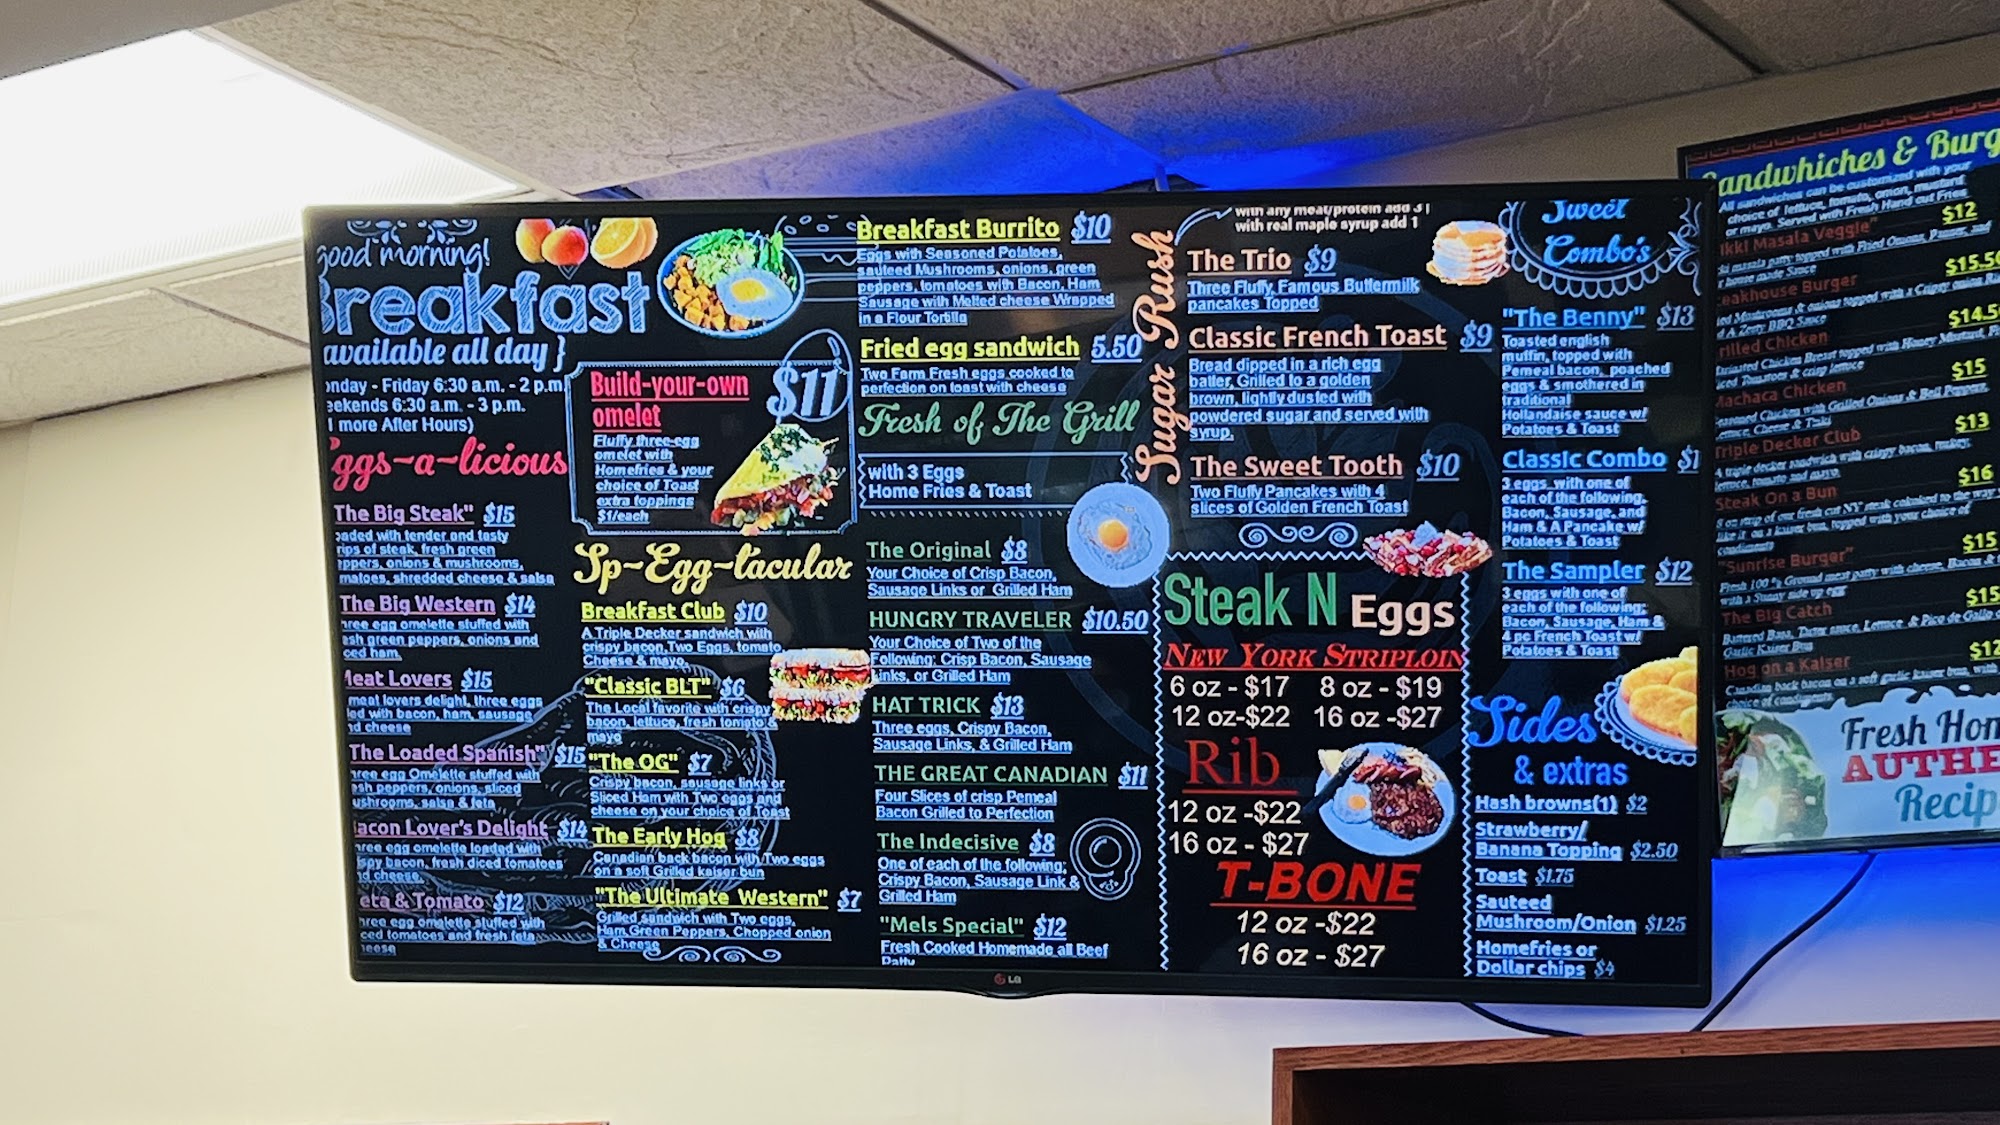 good morning!
Breakfast
available all day }
onday - Friday 6:30 a.m. - 2 p.m.
eekends 6:30 a.m. - 3 p.m.
more After Hours)
ggs-a-licious
The Big Steak" $15
oaded with tender and tasty
rips of steak, fresh green
eppers, onions & mushrooms,
matoes, shredded cheese & salsa
The Big Western $14
hree egg omelette stuffed with
esh green peppers, onions and
ced ham.
Meat Lovers $15
meat lovers delight, three eggs
led with bacon, ham, sausage
nd cheese
The Loaded Spanish" $15
hree egg Omelette stuffed with
esh peppers, onions, sliced
ushrooms, salsa & feta
acon Lover's Delight $14
hree egg omelette loaded with
ispy bacon, fresh diced tomatoes
nd cheese.
eta & Tomato $12
hree egg omelette stuffed with
ced tomatoes and fresh feta
heese
Build-your-own
omelet
$11
Fluffy three-egg
omelet with
Homefries & your
choice of Toast
extra toppings
$1/each
Sp-Egg-tacular
Breakfast Club $10
A Triple Decker sandwich with
crispy bacon,Two Eggs, tomato,
Cheese & mayo.
"Classic BLT" $6
The Local favorite with crispy
bacon, lettuce, fresh tomato &
mayo
"The OG" $7
Crispy bacon, sausage links or
Sliced Ham with Two eggs and
cheese on your choice of Toast
The Early Hog $8
Canadian back bacon with Two eggs
on a soft Grilled kaiser bun
"The Ultimate Western" $7
Grilled sandwich with Two eggs,
Ham,Green Peppers, Chopped onion
& Cheese
Breakfast Burrito $10
Eggs with Seasoned Potatoes,
sauteed Mushrooms, onions, green
peppers, tomatoes with Bacon, Ham
Sausage with Melted cheese Wrapped
in a Flour Tortilla
Fried egg sandwich 5.50
Two Farm Fresh eggs cooked to
perfection on toast with cheese
Fresh of The Grill
with 3 Eggs
Home Fries & Toast
The Original $8
Your Choice of Crisp Bacon,
Sausage Links or Grilled Ham
HUNGRY TRAVELER $10.50
Your Choice of Two of the
Following; Crisp Bacon, Sausage
Links, or Grilled Ham
HAT TRICK $13
Three eggs, Crispy Bacon,
Sausage Links, & Grilled Ham
THE GREAT CANADIAN $11
Four Slices of crisp Pemeal
Bacon Grilled to Perfection
The Indecisive $8
One of each of the following;
Crispy Bacon, Sausage Link &
Grilled Ham
"Mels Special" $12
Fresh Cooked Homemade all Beef
Patty
Sugar Rush
with any meat/protein add 3
with real maple syrup add 1
The Trio $9
Three Fluffy, Famous Buttermilk
pancakes Topped
Classic French Toast $9
Bread dipped in a rich egg
batter, Grilled to a golden
brown, lightly dusted with
powdered sugar and served with
syrup.
The Sweet Tooth $10
Two Fluffy Pancakes with 4
slices of Golden French Toast
Steak N Eggs
NEW YORK STRIPLOIN
6 oz - $17 8 oz - $19
12 oz-$22 16 oz -$27
Rib
12 oz -$22
16 oz - $27
T-BONE
12 oz -$22
16 oz - $27
Sweet
Combo's
"The Benny" $13
Toasted english
muffin, topped with
Pemeal bacon, poached
eggs & smothered in
traditional
Hollandaise sauce w/
Potatoes & Toast
Classic Combo $1
3 eggs with one of
each of the following,
Bacon, Sausage, and
Ham & A Pancake w/
Potatoes & Toast
The Sampler $12
3 eggs with one of
each of the following;
Bacon, Sausage, Ham &
4 pc French Toast w/
Potatoes & Toast
Sides
& extras
Hash browns(1) $2
Strawberry/
Banana Topping $2.50
Toast $1.75
Sauteed
Mushroom/Onion $1.25
Homefries or
Dollar chips $4
LG
Sandwhiches & Burg
All sandwiches can be customized with your
choice of lettuce, tomato, onion, mustard
or mayo. Served with Fresh Hand cut Fries
$12
ikki Masala Veggie"
masala patty topped with Fried Onions, Paneer, and
house made Sauce
$15.50
eakhouse Burger
Mushrooms & onions topped with a Crispy onion
A Zesty BBQ Sauce
$14.5
rilled Chicken
Chicken Breast topped with Honey Mustard,
Tomatoes & crisp lettuce
$15
Machaca Chicken
easoned Chicken with Grilled Onions & Bell Peppers,
ettuce, Cheese &
$13
Triple Decker Club
A triple decker sandwich with crispy bacon, turkey,
lettuce, tomato and mayo.
$16
Steak On a Bun
8 oz strip of our fresh cut NY steak cooked to the way
like it on a kaiser bun, topped with your choice of
condiments
$15
"Sunrise Burger"
Fresh 100 % Ground meat patty with cheese, Bacon &
with a Sunny side up egg
$15
The Big Catch
Battered Bass, Tartar sauce, Lettuce & Pico de Gallo
Garlic Kaiser Bun
$12
Hog on a Kaiser
Canadian back bacon on a soft garlic kaiser bun, with
choice of condiments
Fresh Hom
AUTHE
Recip